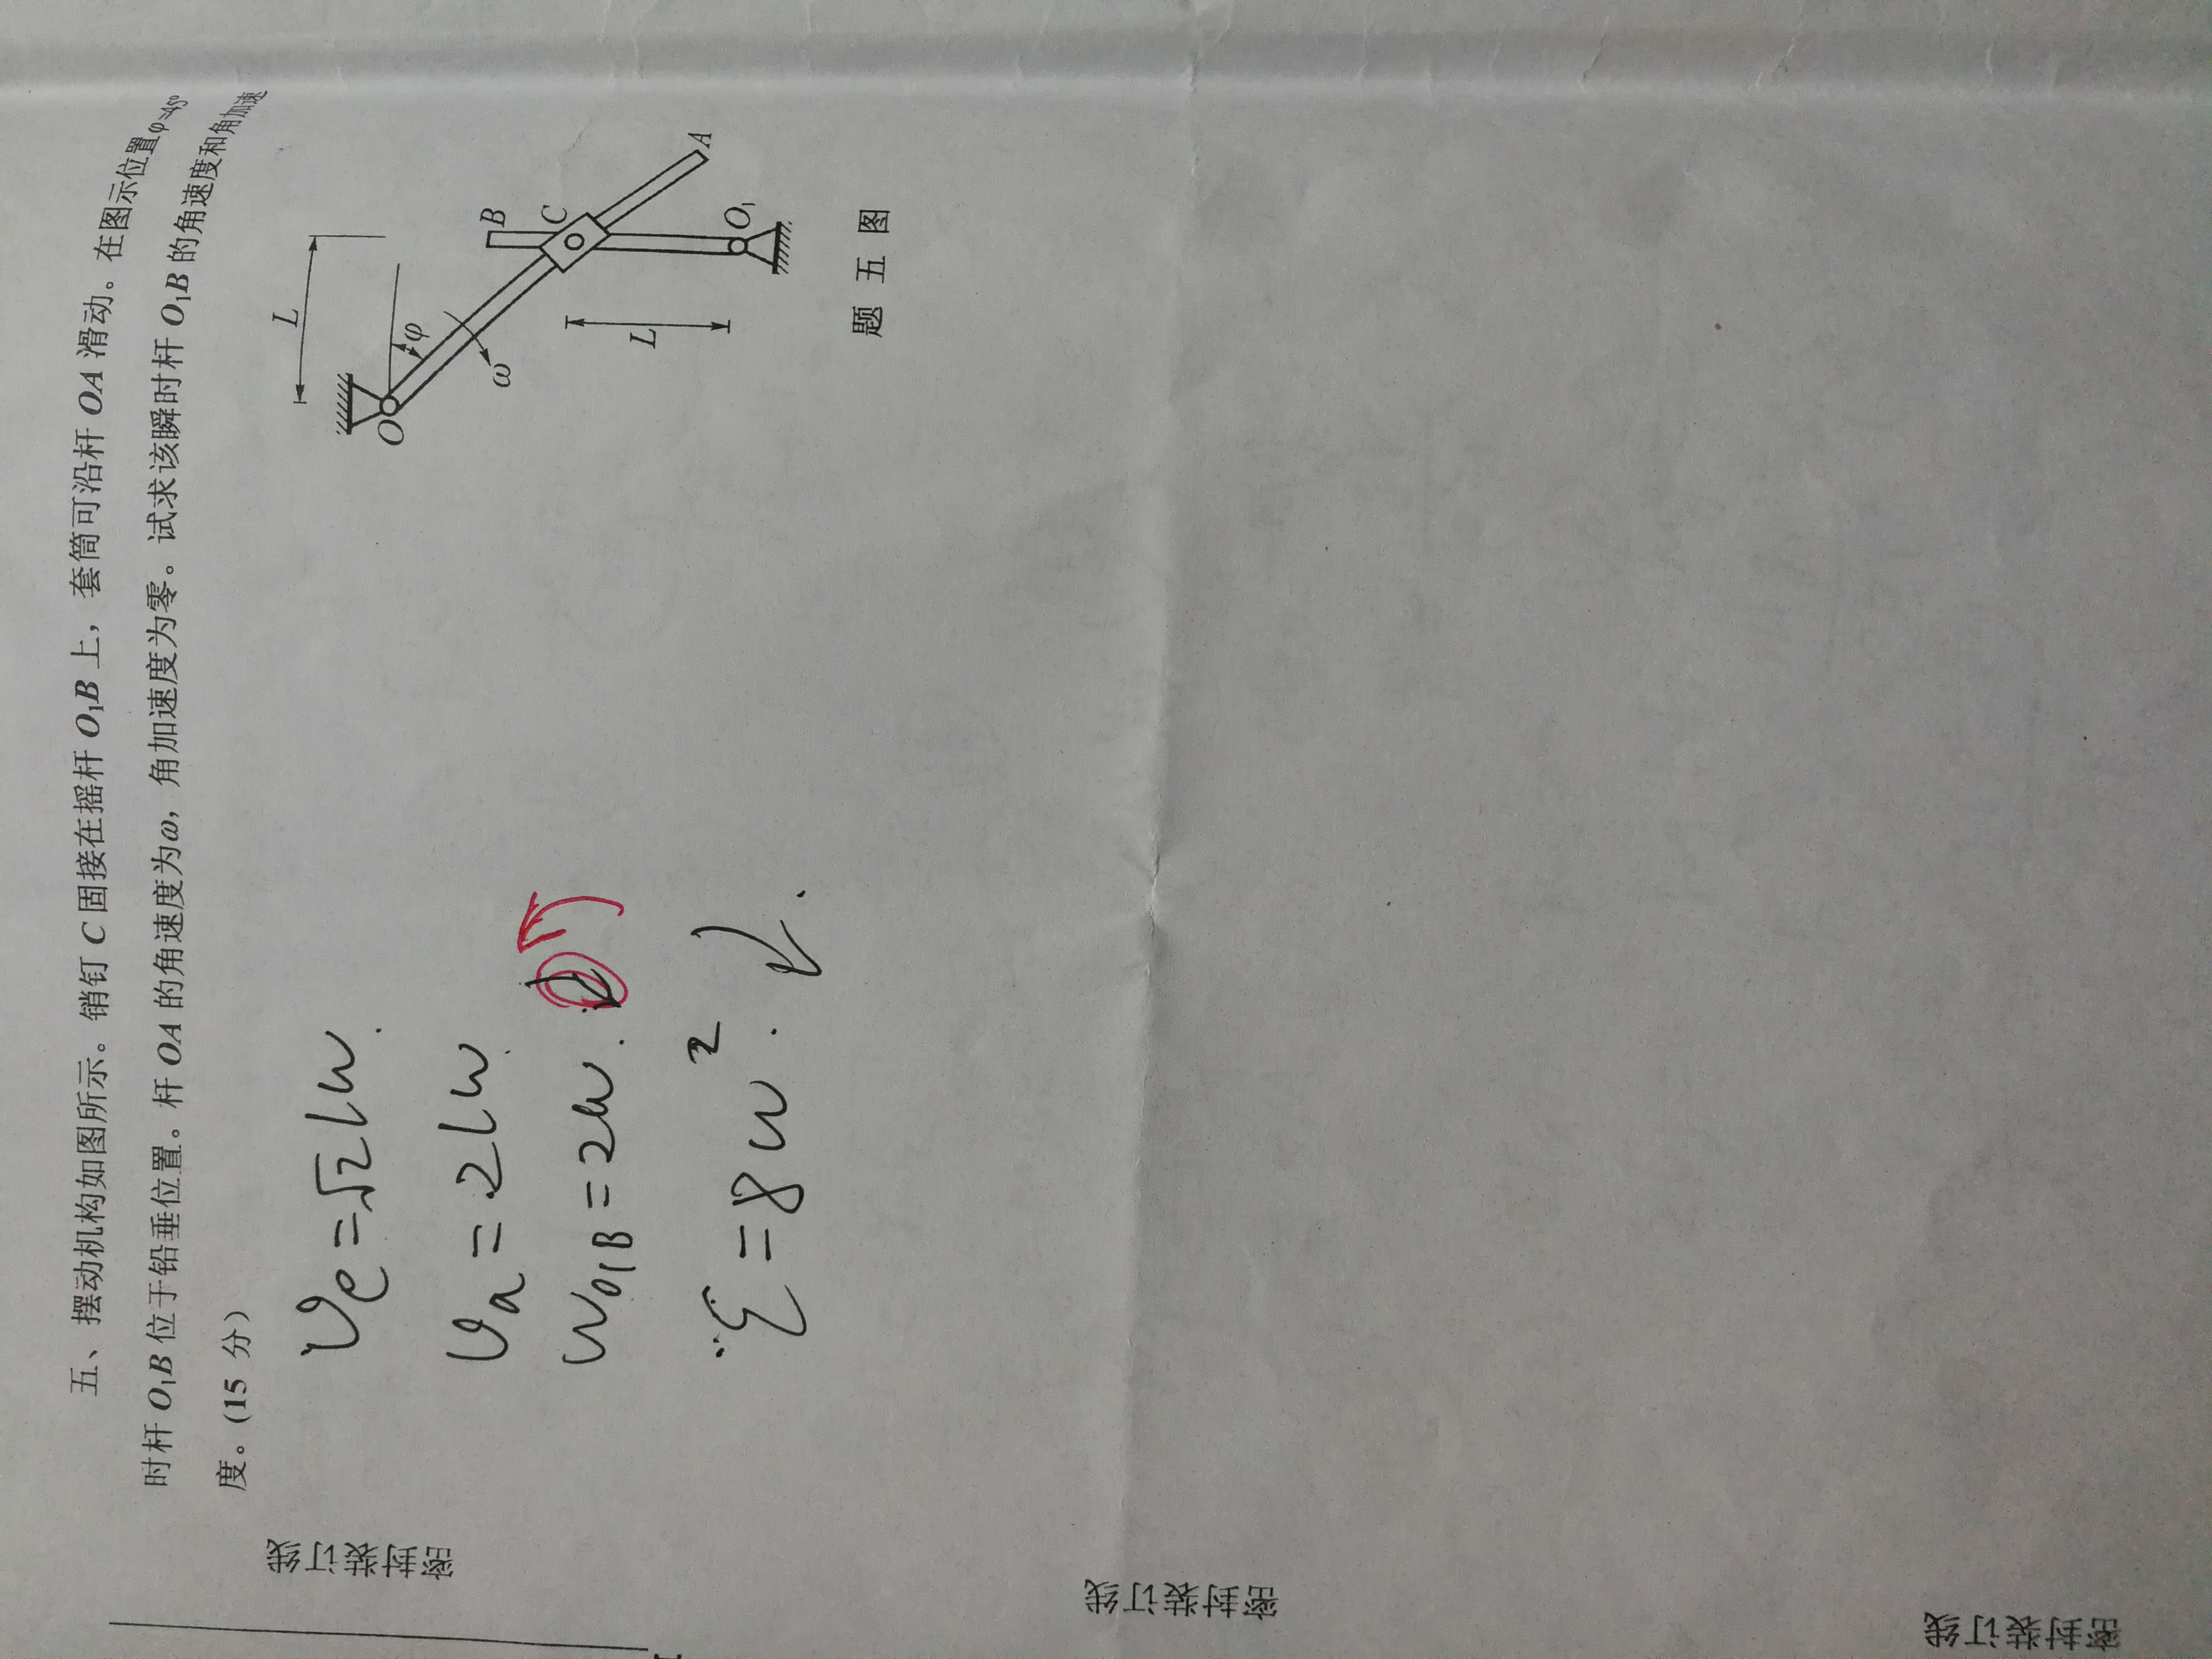 五、摆动机构如图所示。销钉 C 固接在摇杆 O₁B 上，套筒可沿杆 OA 滑动。在图示位置φ=45°
时杆 O₁B 位于铅垂位置。杆 OA 的角速度为ω，角加速度为零。试求该瞬时杆 O₁B 的角速度和角加速
度。(15 分)
L
O
φ
ω
B
C
L
A
O₁
题 五 图
υe=√2Lω.
υa=2Lω.
ωO₁B=2ω.
ε=8ω².
密封装订线
密封装订线
密封装订线